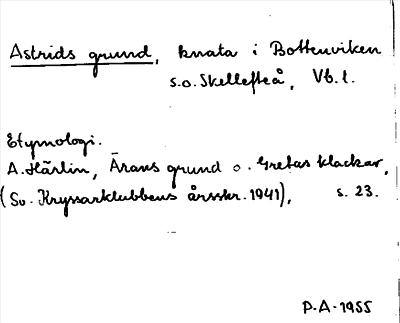 Astrids grund, knata i Bottenviken
s.o. Skellefteå, Vb. l.
Etymologi.
A. Härlin, Ärans grund o. Gretas klackar,
(Sv. Kryssarklubbens årsskr. 1941), s. 23.
P.A. 1955